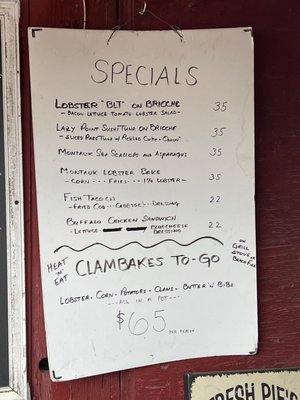 SPECIALS
LOBSTER "BLT" ON BRIOCHE 35
- BACON-LETTUCE-TOMATO-LOBSTER SALAD-
LAZY POINT SUSHI TUNA ON BRIOCHE 35
- SLICED RARE TUNA W/ PICKLED CUKE
MONTAUK SEA SCALLOPS AND ASPARAGUS 35
MONTAUK LOBSTER BAKE 35
- CORN --- FRIES --- 1¼ LOBSTER -
FISH TACO(S) 22
- FRIED COD -- CABBAGE -- DRESSING
BUFFALO CHICKEN SANDWICH 22
- LETTUCE - BLUECHEESE
DRESSING
HEAT
'N'
EAT
CLAMBAKES TO-GO
ON
GRILL
STOVE OR
BEACH FIRE
LOBSTER. CORN. POTATOES. CLAMS. BUTTER 'N' BIBS
--- ALL IN A POT ---
$65 PER PERSON
FRESH PIE'S